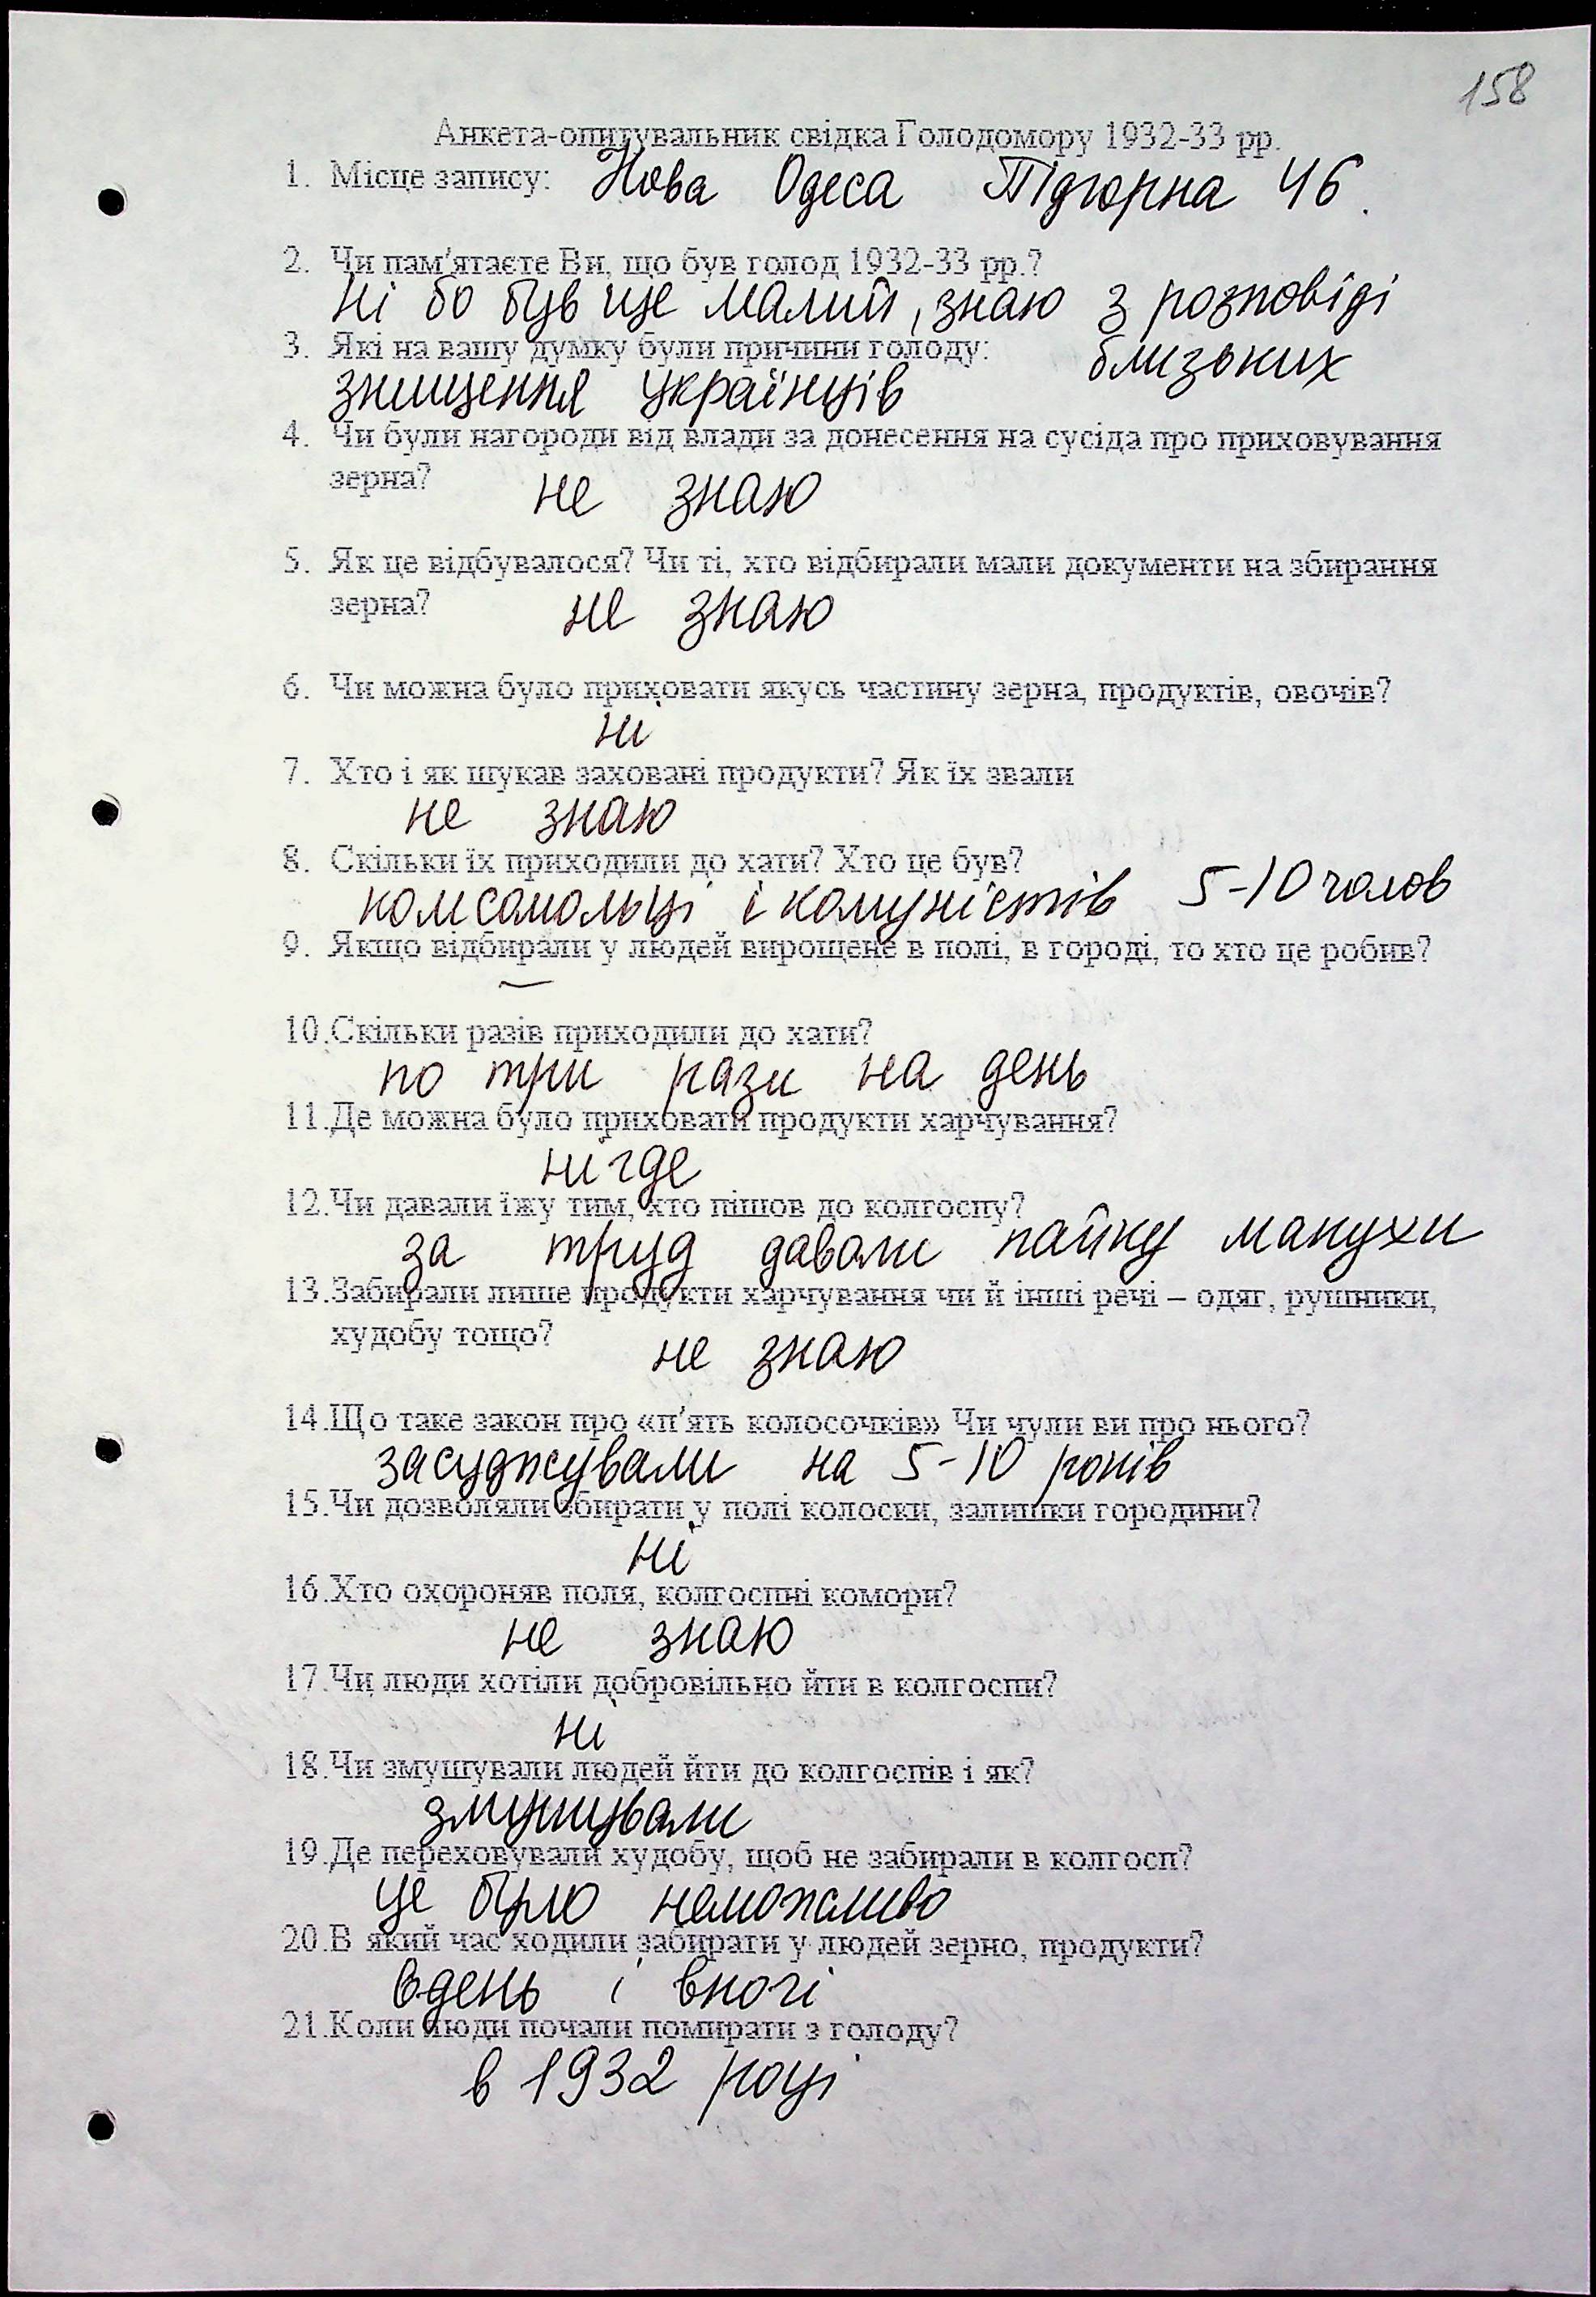 158
Анкета-опитувальник свідка Голодомору 1932-33 рр.
1. Місце запису: Нова Одеса Підгорна 46.
2. Чи пам'ятаєте Ви, що був голод 1932-33 рр.?
ні бо був ще малий, знаю з розповіді
близьких
3. Які на вашу думку були причини голоду:
знищення українців
4. Чи були нагороди від влади за донесення на сусіда про приховування
зерна? не знаю
5. Як це відбувалося? Чи ті, хто відбирали мали документи на збирання
зерна? не знаю
6. Чи можна було приховати якусь частину зерна, продуктів, овочів?
ні
7. Хто і як шукав заховані продукти? Як їх звали
не знаю
8. Скільки їх приходили до хати? Хто це був?
комсомольці і комуністів 5-10 чолов
9. Якщо відбирали у людей вирощене в полі, в городі, то хто це робив?
—
10.Скільки разів приходили до хати?
по три рази на день
11.Де можна було приховати продукти харчування?
нігде
12.Чи давали їжу тим, хто пішов до колгоспу?
за труд давали пайку макухи
13.Забирали лише продукти харчування чи й інші речі – одяг, рушники,
худобу тощо? не знаю
14.Що таке закон про «п'ять колосочків» Чи чули ви про нього?
засуджували на 5-10 років
15.Чи дозволяли збирати у полі колоски, залишки городини?
ні
16.Хто охороняв поля, колгоспні комори?
не знаю
17.Чи люди хотіли добровільно йти в колгоспи?
ні
18.Чи змушували людей йти до колгоспів і як?
змушували
19.Де переховували худобу, щоб не забирали в колгосп?
це було неможливо
20.В який час ходили забирати у людей зерно, продукти?
вдень і вночі
21.Коли люди почали помирати з голоду?
в 1932 році